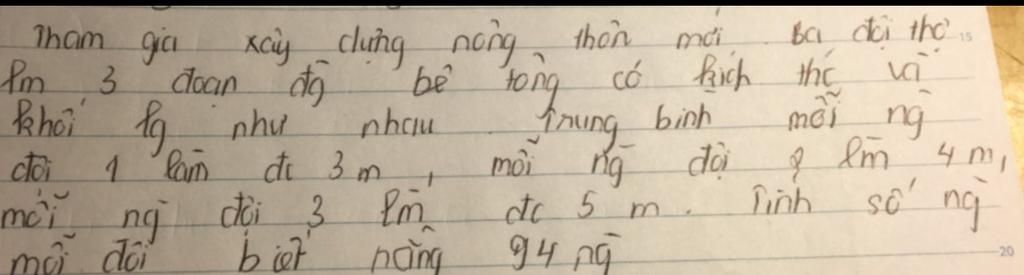 Tham gia xây dựng nông thôn mới ba đội thợ
lm 3 đoạn đg bê tông có kích thc và
khối lg như nhau. Trung bình mỗi ng
đội 1 làm đc 3 m, mỗi ng đội 2 lm 4 m,
mỗi ng đội 3 lm đc 5 m. Tính số ng
mỗi đội biết 94 ng
15
20